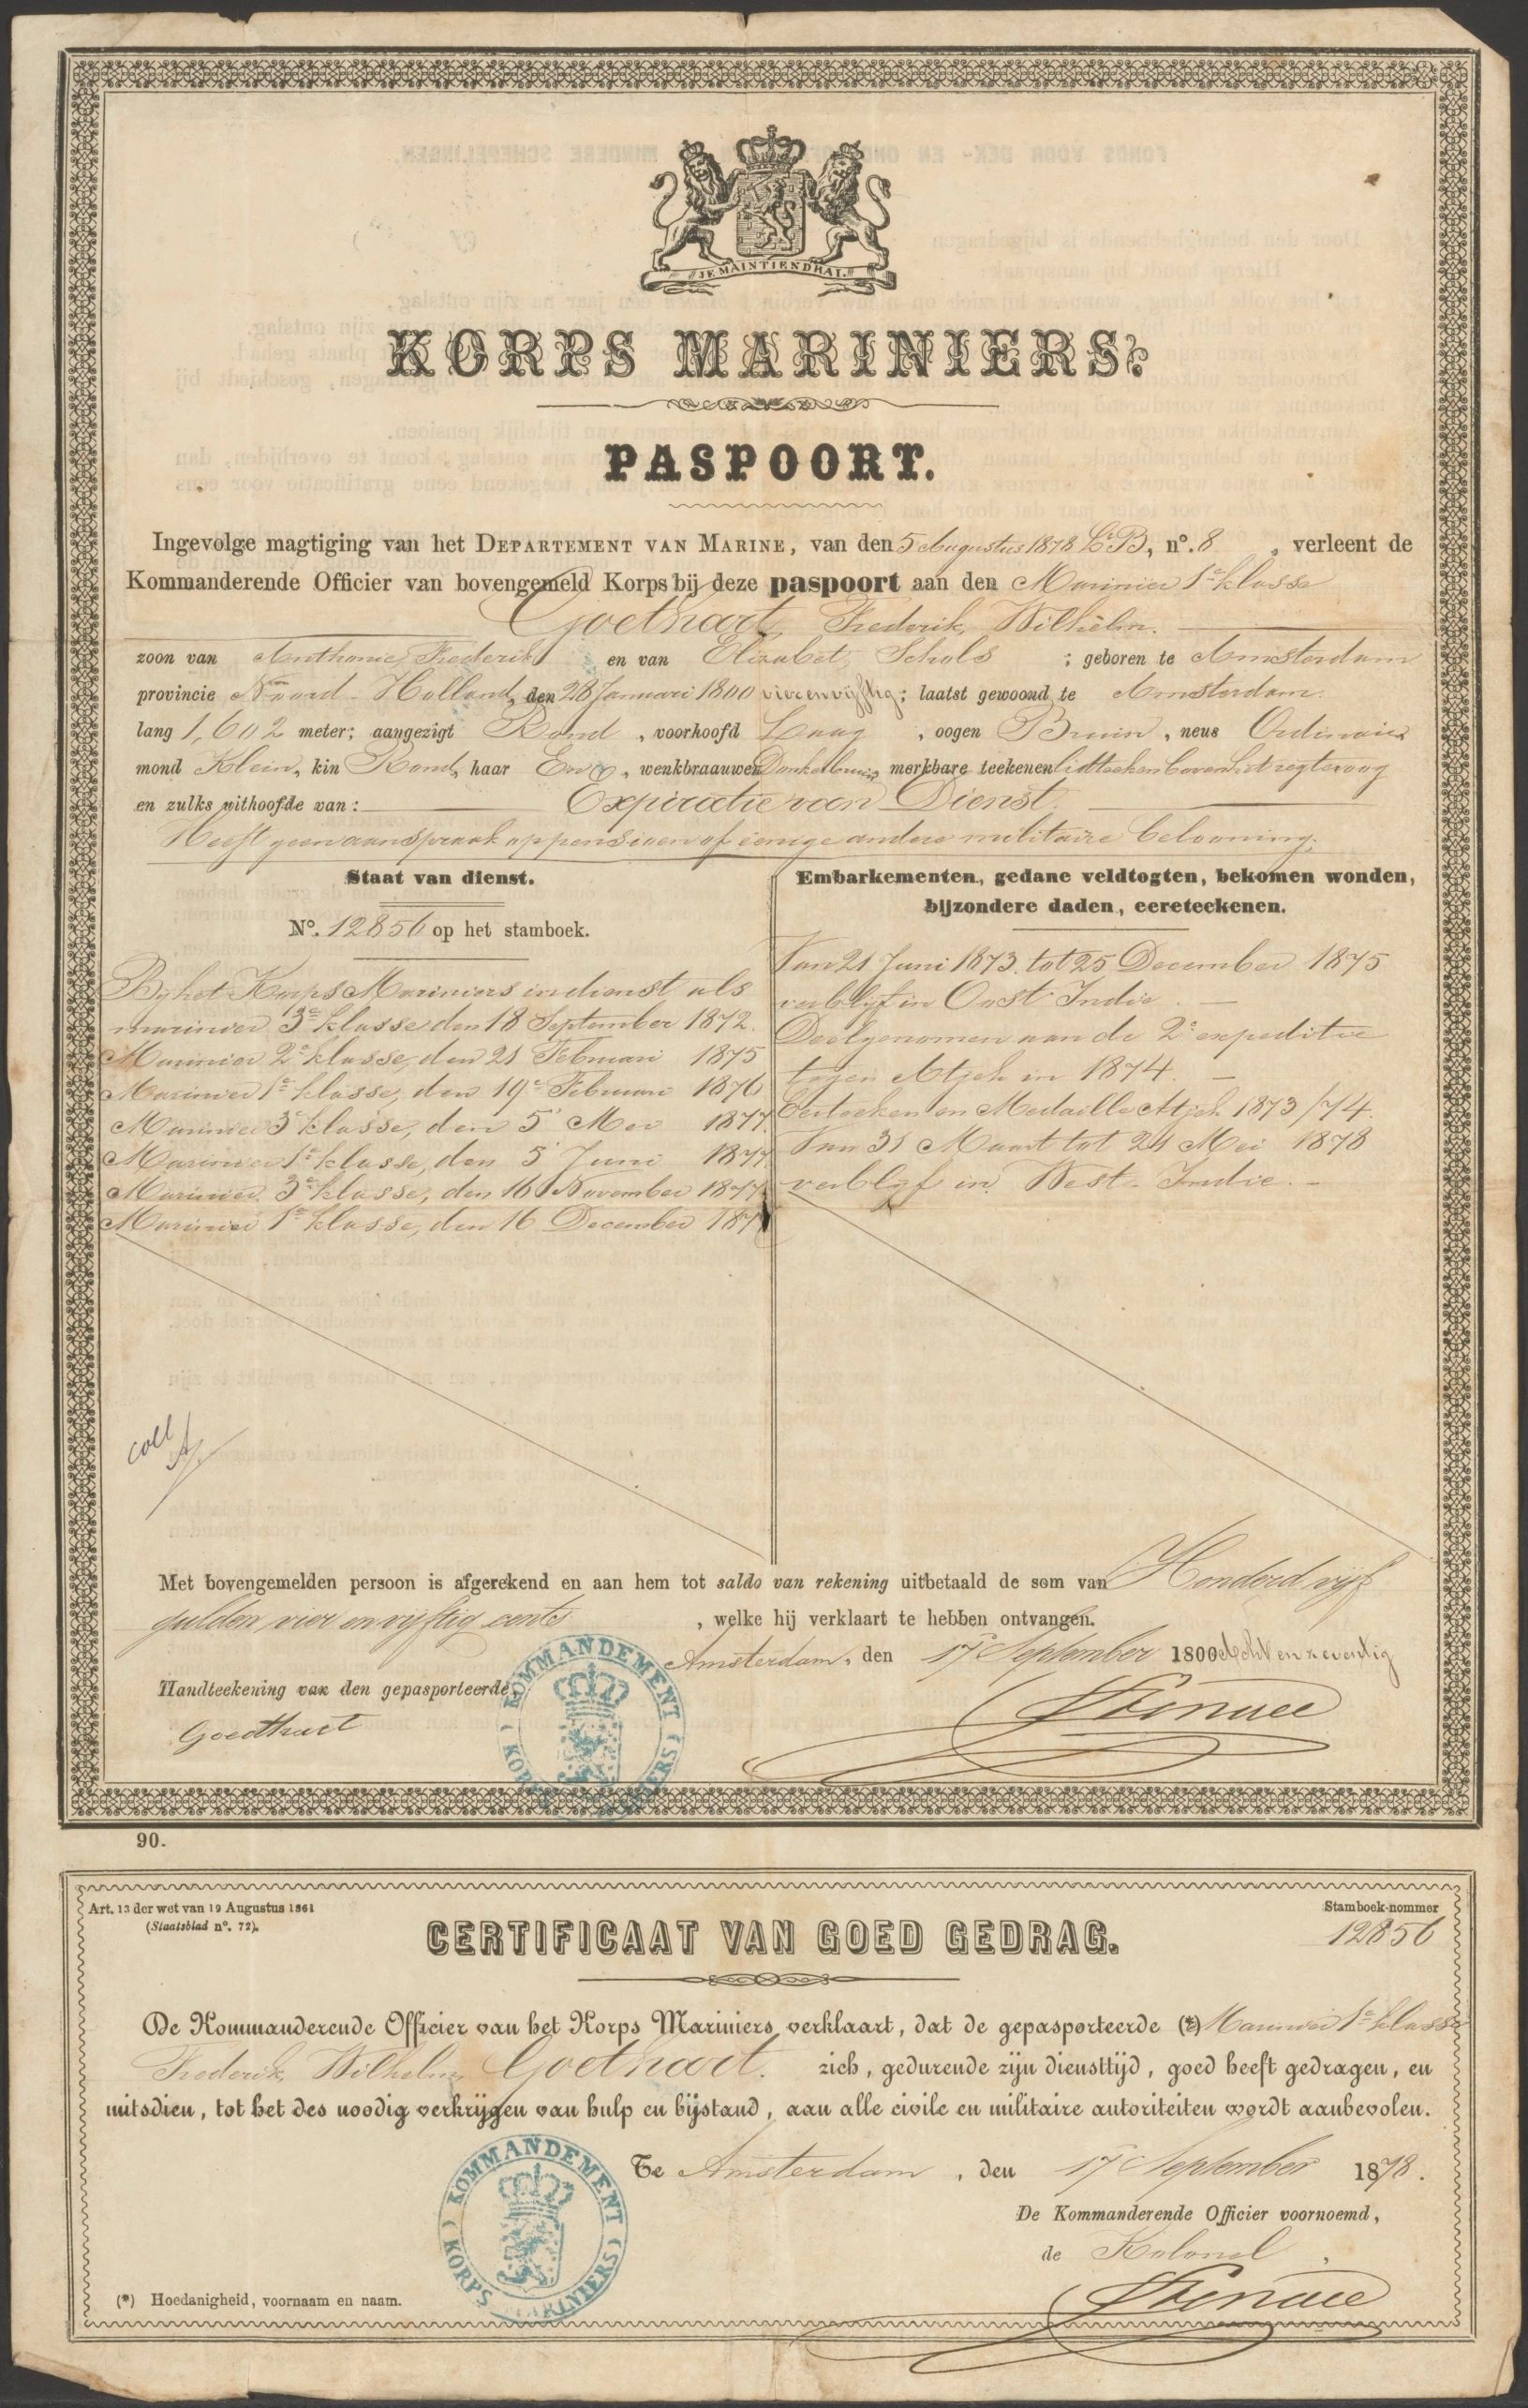 JE MAINTIENDRAI.
KORPS MARINIERS.
PASPOORT.
Ingevolge magtiging van het DEPARTEMENT VAN MARINE, van den 5 Augustus 1878 La B, no. 8, verleent de
Kommanderende Officier van bovengemeld Korps bij deze paspoort aan den Marinier 1e klasse
Goethart, Frederik, Wilhelm.
zoon van Anthonie Frederik en van Elizabet Schols ; geboren te Amsterdam
provincie Noord-Holland, den 28 Januari 1800 vierenvijftig; laatst gewoond te Amsterdam.
lang 1,602 meter; aangezigt Rond, voorhoofd Laag, oogen Bruin, neus Ordinair
mond Klein, kin Rond, haar , wenkbraauwen Donkerbruin, merkbare teekenen lidteeken boven het regteroog
en zulks uithoofde van: Expiratie van Dienst.
Heeft geen aanspraak op pensioen of eenige andere militaire belooning.
Staat van dienst.
No. 12856 op het stamboek.
By het Korps Mariniers in dienst als
marinier 3e klasse den 18 September 1872.
Marinier 2e klasse, den 21 Februari 1875
Marinier 1e klasse, den 19e Februari 1876
Marinier 3e klasse, den 5 Mei 1877.
Marinier 1e klasse, den 5 Juni 1877.
Marinier 3e klasse, den 16 November 1877
Marinier 1e klasse, den 16 December 187
Embarkementen, gedane veldtogten, bekomen wonden,
bijzondere daden, eereteekenen.
Van 21 Juni 1873 tot 25 December 1875
verblyf in Oost Indie. —
Deelgenomen aan de 2e expeditie
tegen Atjeh in 1874. —
Eerteeken en Medaille Atjeh 1873/74.
Van 31 Maart tot 21 Mei 1878
verblyf in West-Indie. —
coll
Met bovengemelden persoon is afgerekend en aan hem tot saldo van rekening uitbetaald de som van Honderd vijf
gulden vier en vyftig cents, welke hij verklaart te hebben ontvangen.
Amsterdam, den 17 September 1800 Acht en zeventig
Handteekening van den gepasporteerde,
Goedthart
KOMMANDEMENT (KORPS MARINIERS)
90.
Art. 13 der wet van 19 Augustus 1861
(Staatsblad no. 72).
Stamboek-nommer
12856
CERTIFICAAT VAN GOED GEDRAG.
De Kommanderende Officier van het Korps Mariniers verklaart, dat de gepasporteerde (*) Marinier 1e klasse
Frederik, Wilhelm Goethart. zich, gedurende zijn diensttijd, goed heeft gedragen, en
mitsdien, tot het des noodig verkrijgen van hulp en bijstand, aan alle civile en militaire autoriteiten wordt aanbevolen.
Te Amsterdam, den 17 September 1878.
De Kommanderende Officier voornoemd,
de Kolonel,
KOMMANDEMENT (KORPS MARINIERS)
(*) Hoedanigheid, voornaam en naam.